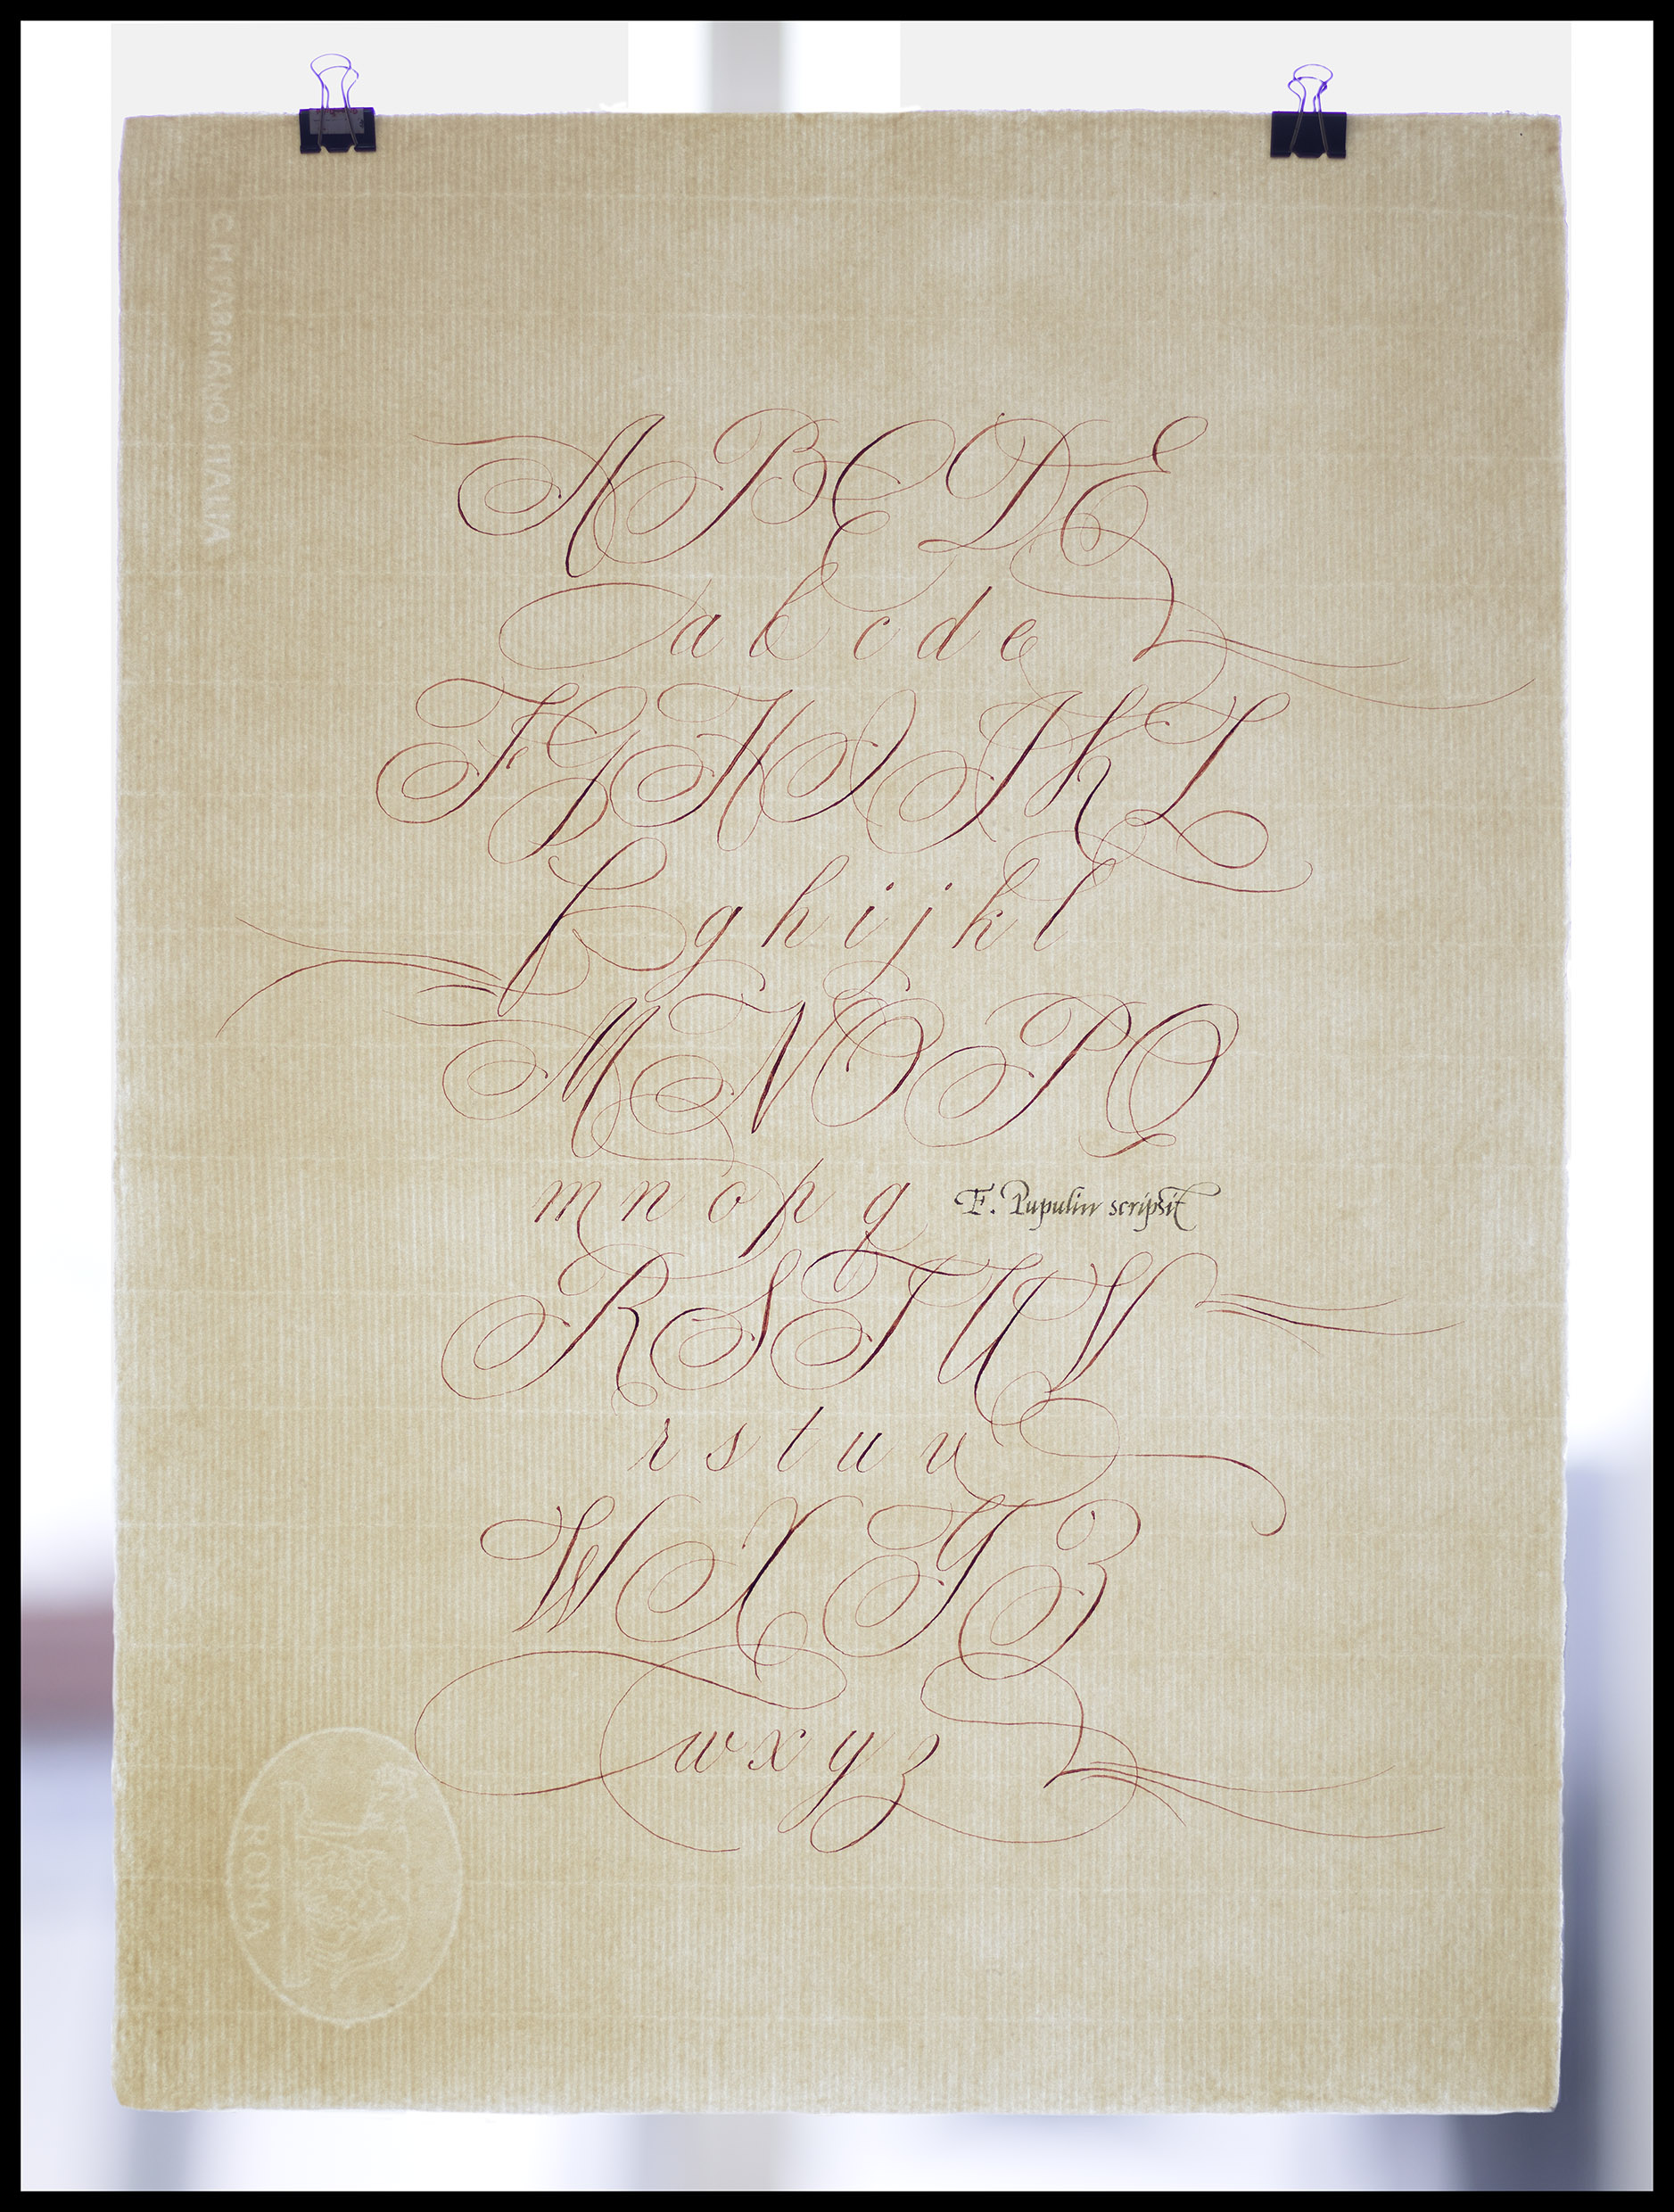 A B C D E
a b c d e
F G H I J K L
f g h i j k l
M N O P Q
m n o p q
F. Pupulin scripsit
R S T U V
r s t u v
W X Y Z
w x y z
C.M.FABRIANO ITALIA
ROMA